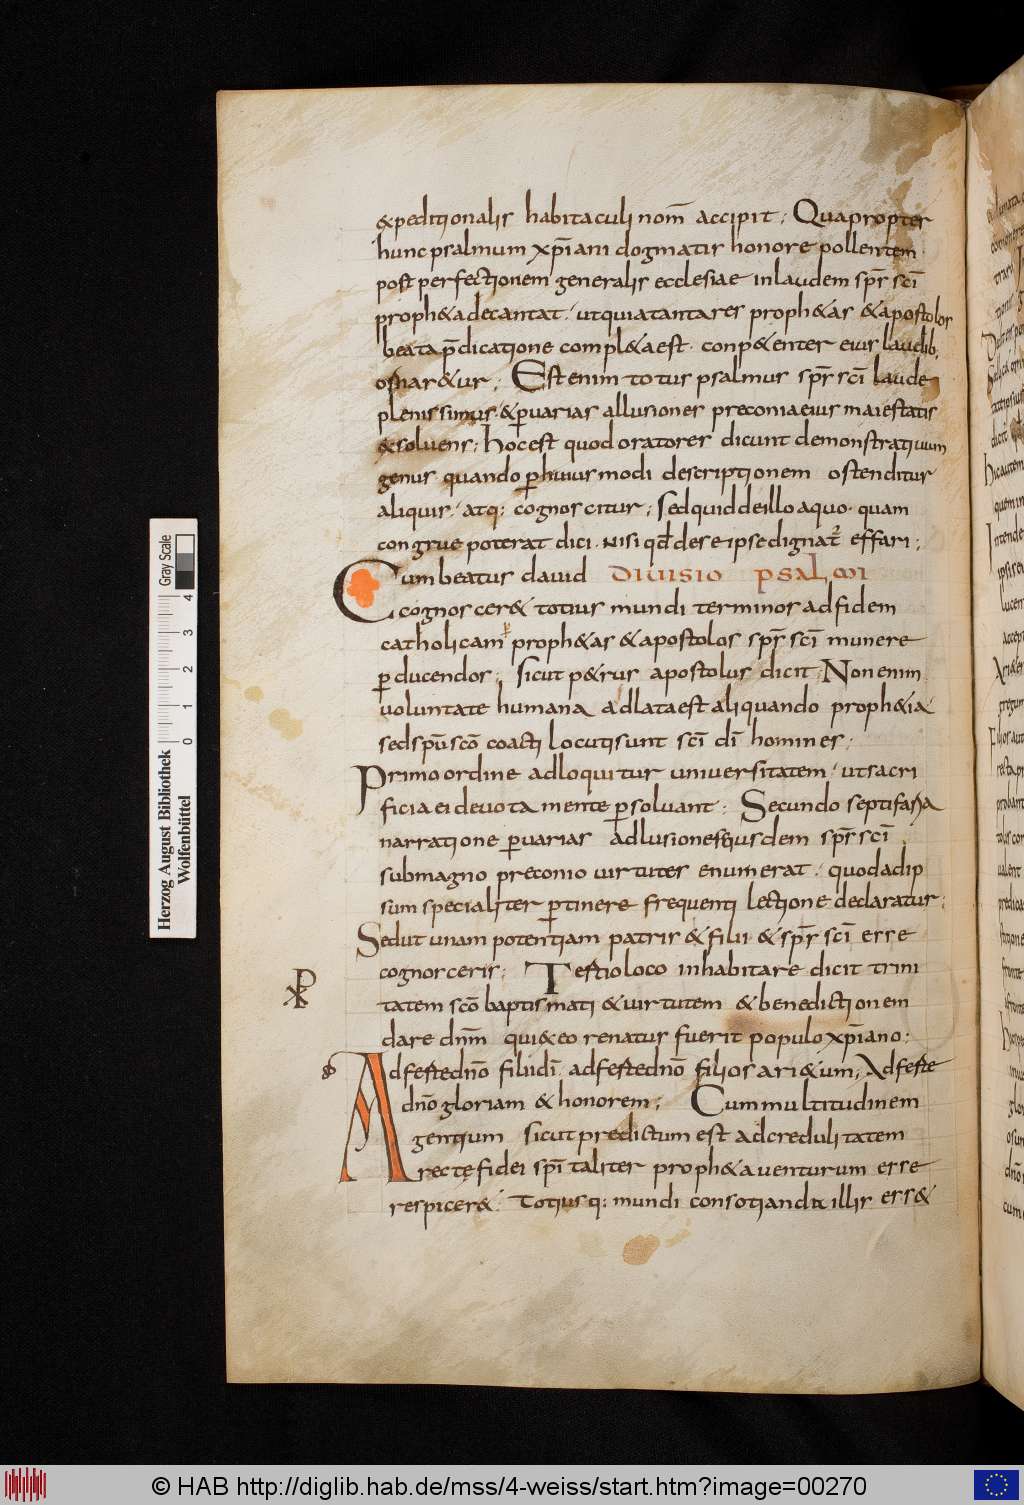 &peditionalis habitaculi nom̄ accipit; Quapropter
hunc psalmum xp̄iani dogmatis honore pollentem
post perfectionem generalis ecclesiae in laudem sp̄s sc̄i
proph&a decantat. ut quia tanta res proph&as & apostolos
beata p̄dicatione compl&a est. conp&enter eius laudib;
osnar&ur; Est enim totus psalmus sp̄s sc̄i laude
plenissimus. & ꝑ uarias allusiones preconia eius maiestatis
&soluens; hoc est quod oratores dicunt demonstratiuum
genus. quando ꝑ huius modi descriptionem ostenditur
aliquis. atq; cognoscitur; sed quid de illo a quo quam
congrue poterat dici. nisi qd̄ de se ipse dignat᷑ effari;
Cum beatus dauid DIUISIO PSALMI
cognoscer& totius mundi terminos ad fidem
catholicam proph&as & apostolos sp̄s sc̄i munere
ꝑducendos; sicut p&rus apostolus dicit; Non enim
uoluntate humana adlata est aliquando proph&ia.
sed sp̄u sc̄o coacti locuti sunt sc̄i dī homines;
Primo ordine adloquitur uniuersitatem. ut sacri
ficia ei deuota mente ꝑsoluant; Secundo septifaria
narratione ꝑ uarias adlusiones eiusdem sp̄s sc̄i
sub magno preconio uirtutes enumerat. quod ad ip
sum specialiter ꝑtinere frequenti lectione declaratur;
Sed ut unam potentiam patris & filii & sp̄s sc̄i esse
cognosceris; Testio loco inhabitare dicit trini
tatem sc̄o baptismati & uirtutem & benedictionem
dare dn̄m qui & eo renatus fuerit populo xp̄iano;
Adfeste dn̄o filii dī. adfeste dn̄o filios ari&um; Adfeste
dn̄o gloriam & honorem; Cum multitudinem
gentium sicut predictum est ad credulitatem
recte fidei sp̄i taliter proph&a uenturum esse
respicer&. Totiusq; mundi consotianda illis ess&
Herzog August Bibliothek
Wolfenbüttel
Gray Scale
0 1 2 3 4
© HAB http://diglib.hab.de/mss/4-weiss/start.htm?image=00270